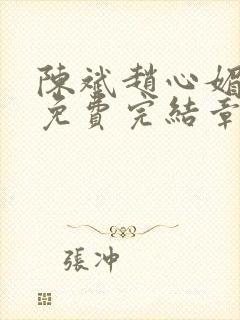 陳斌趙心媚
免費完結章
張冲